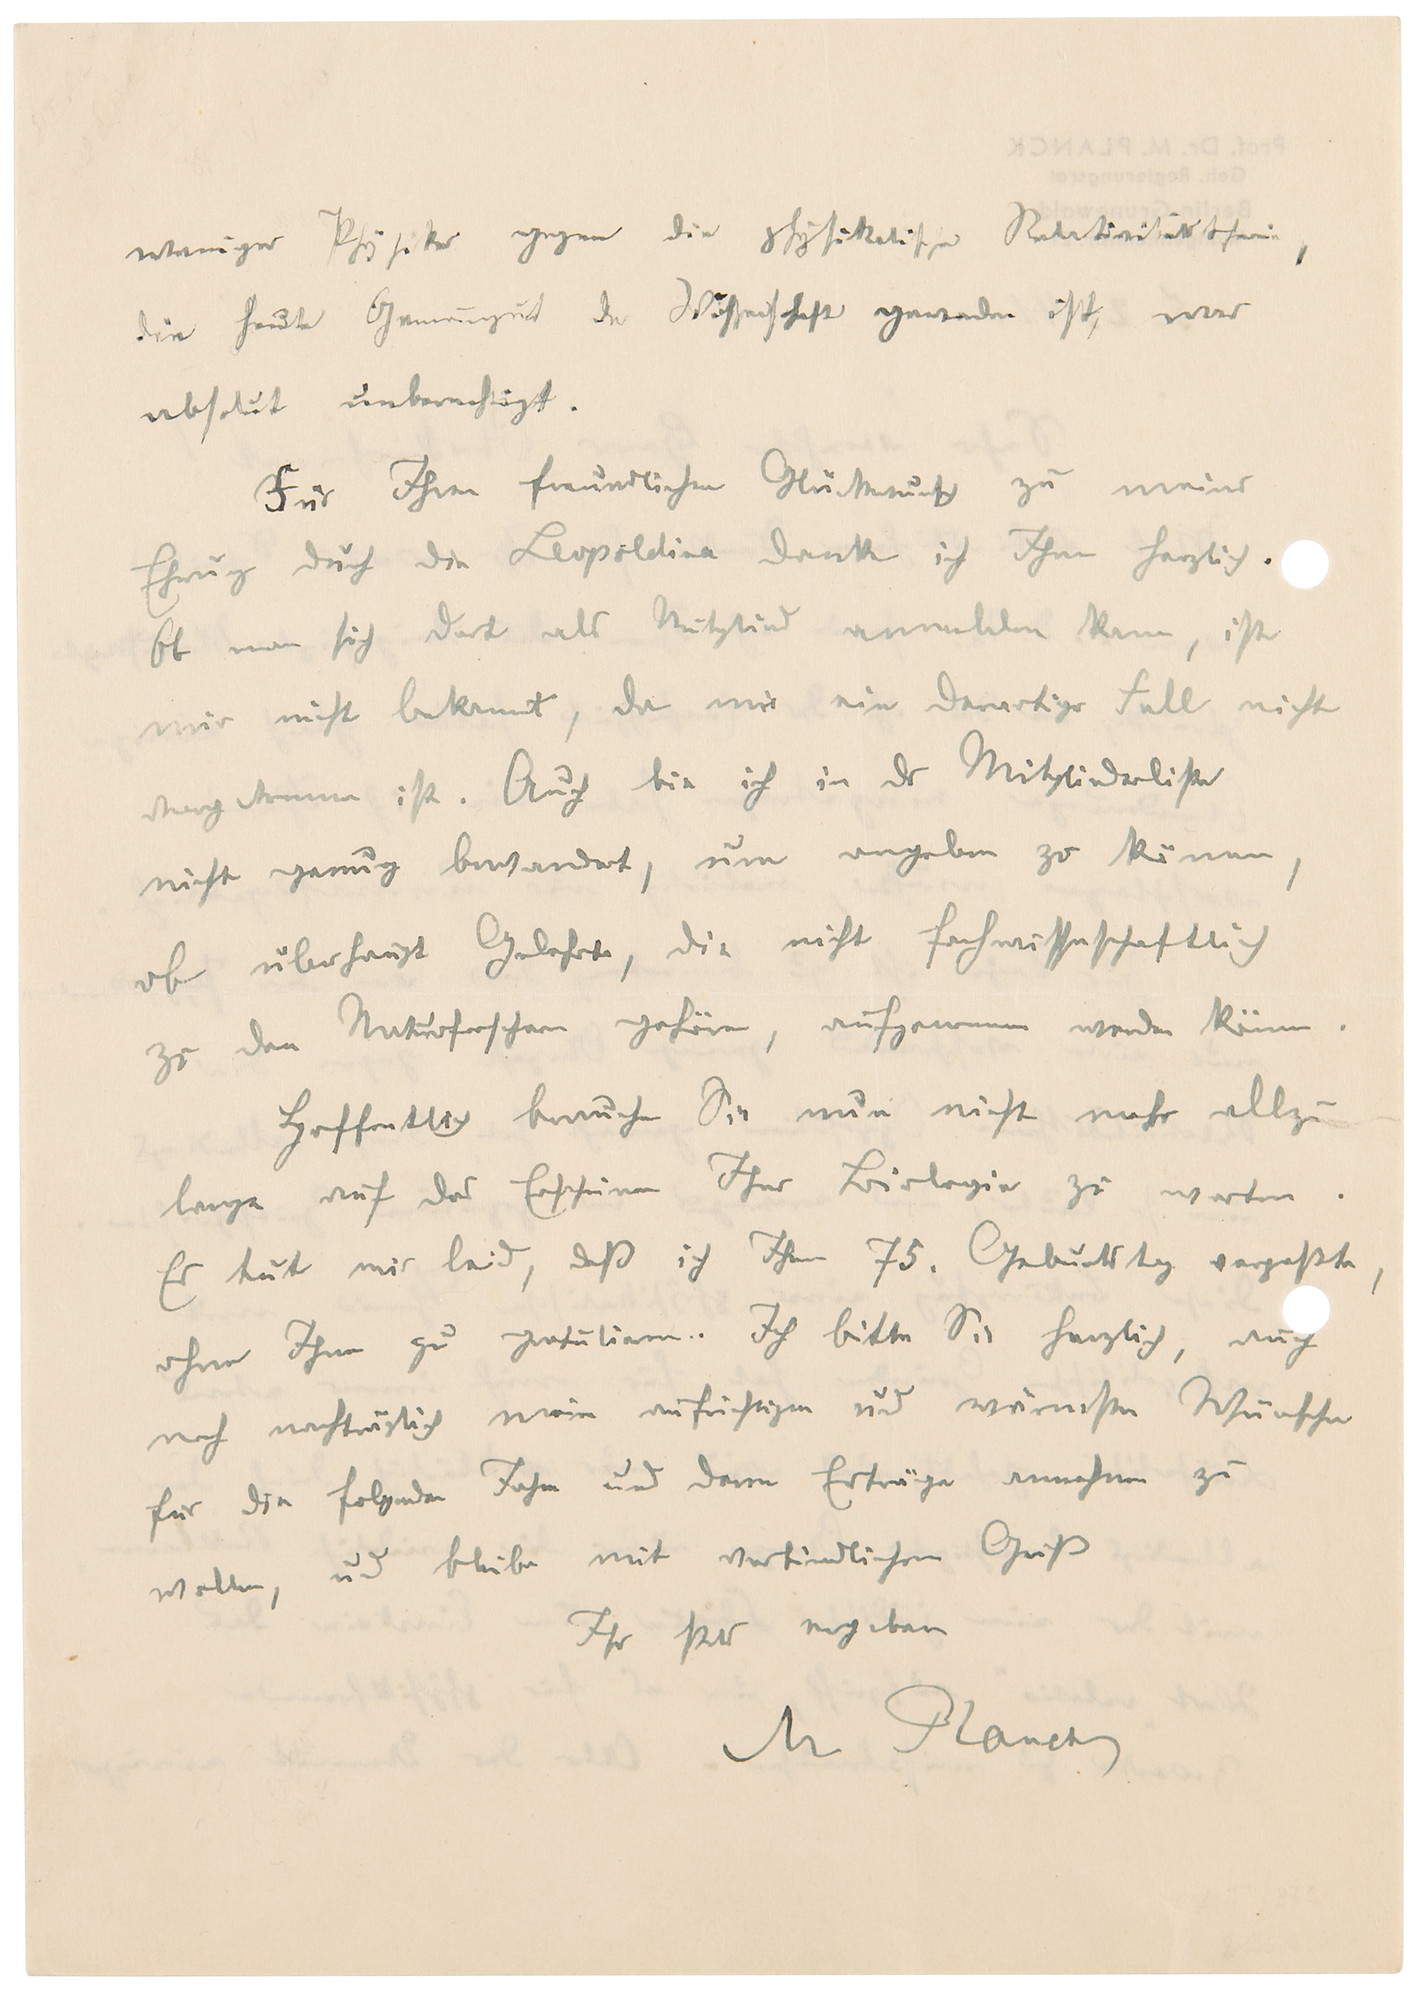 weniger Physiker gegen die physikalische Relativitätstheorie,
die heute Gemeingut der Wissenschaft geworden ist, war
absolut unberechtigt.
Für Ihren freundlichen Glückwunsch zu meiner
Ehrung durch die Leopoldina danke ich Ihnen herzlich.
Ob man sich dort als Mitglied anmelden kann, ist
mir nicht bekannt, da mir ein derartiger Fall nicht
vorgekommen ist. Auch bin ich in der Mitgliederliste
nicht genug bewandert, um angeben zu können,
ob überhaupt Gelehrte, die nicht fachwissenschaftlich
zu den Naturforschern gehören, aufgenommen werden können.
Hoffentlich brauchen Sie nun nicht mehr allzu
lange auf das Erscheinen Ihrer Biologie zu warten.
Es tut mir leid, daß ich Ihren 75. Geburtstag verpaßte,
ohne Ihnen zu gratulieren. Ich bitte Sie herzlich, auch
noch nachträglich meine aufrichtigen und wärmsten Wünsche
für die folgenden Jahre und deren Erträge annehmen zu
wollen, und bleibe mit verbindlichem Gruß
Ihr stets ergebener
M. Planck
Prof. Dr. M. PLANCK
Geh. Regierungsrat
Berlin-Grunewald